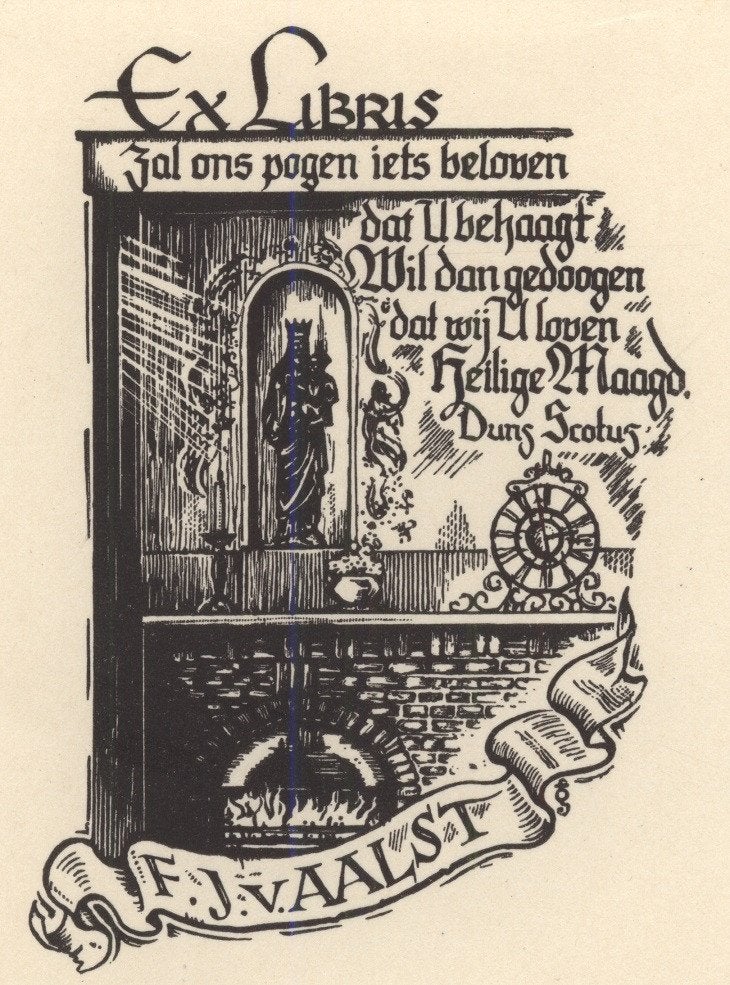 Ex Libris
Zal ons pogen iets beloven
dat U behaagt
Wil dan gedoogen
dat wij U loven
Heilige Maagd.
Duns Scotus
F. J. v. AALST